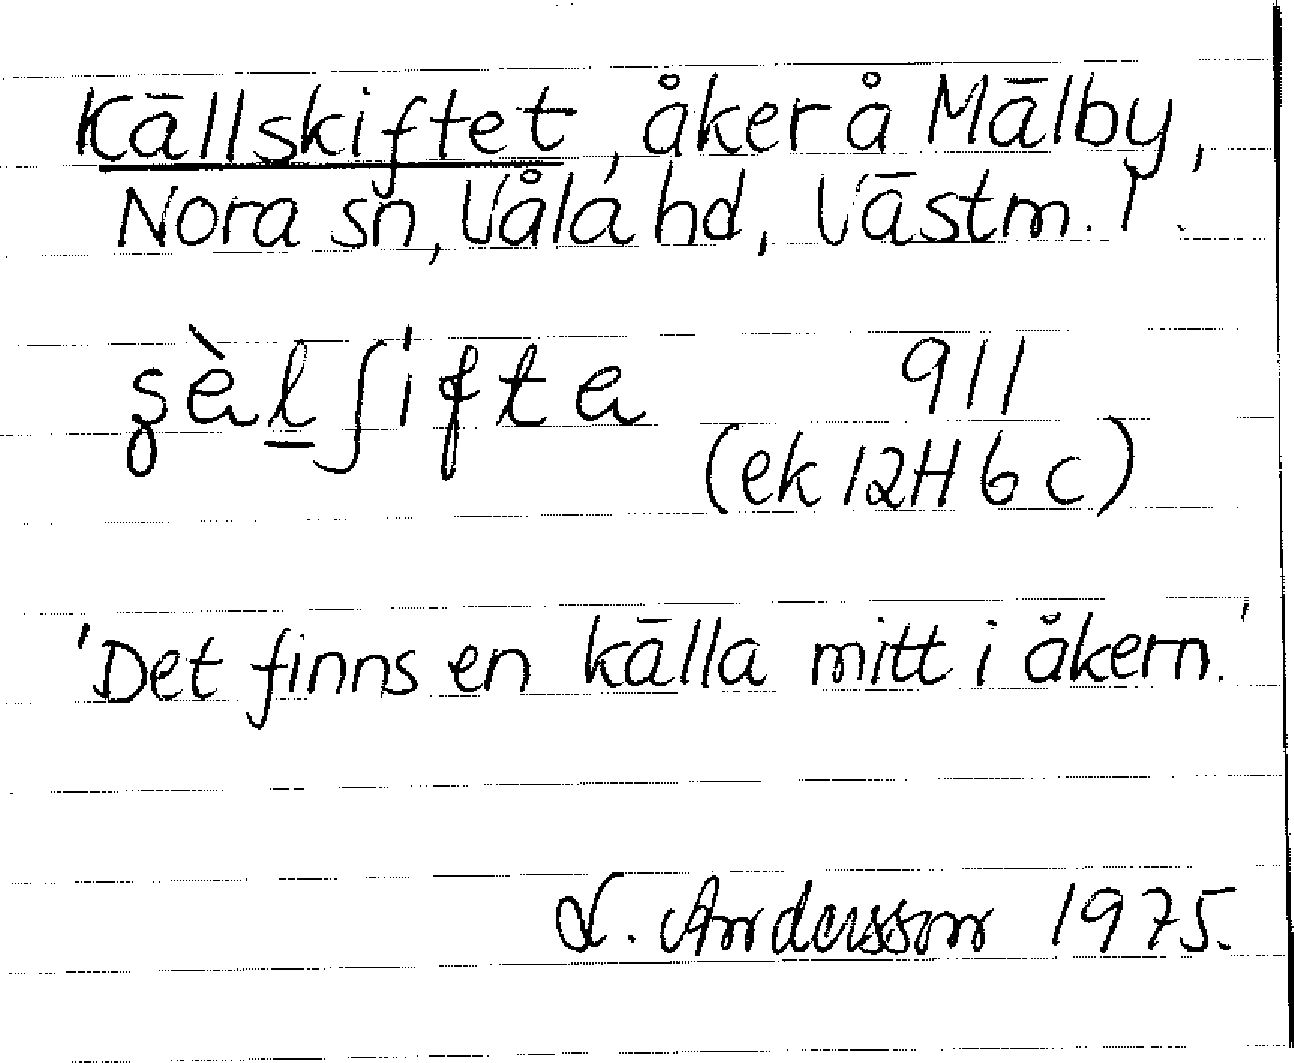 Källskiftet, åker å Mälby,
Nora sn, Våla hd, Västm. l.
911
(ek 12H 6c)
'Det finns en källa mitt i åkern.'
L. Andersson 1975.